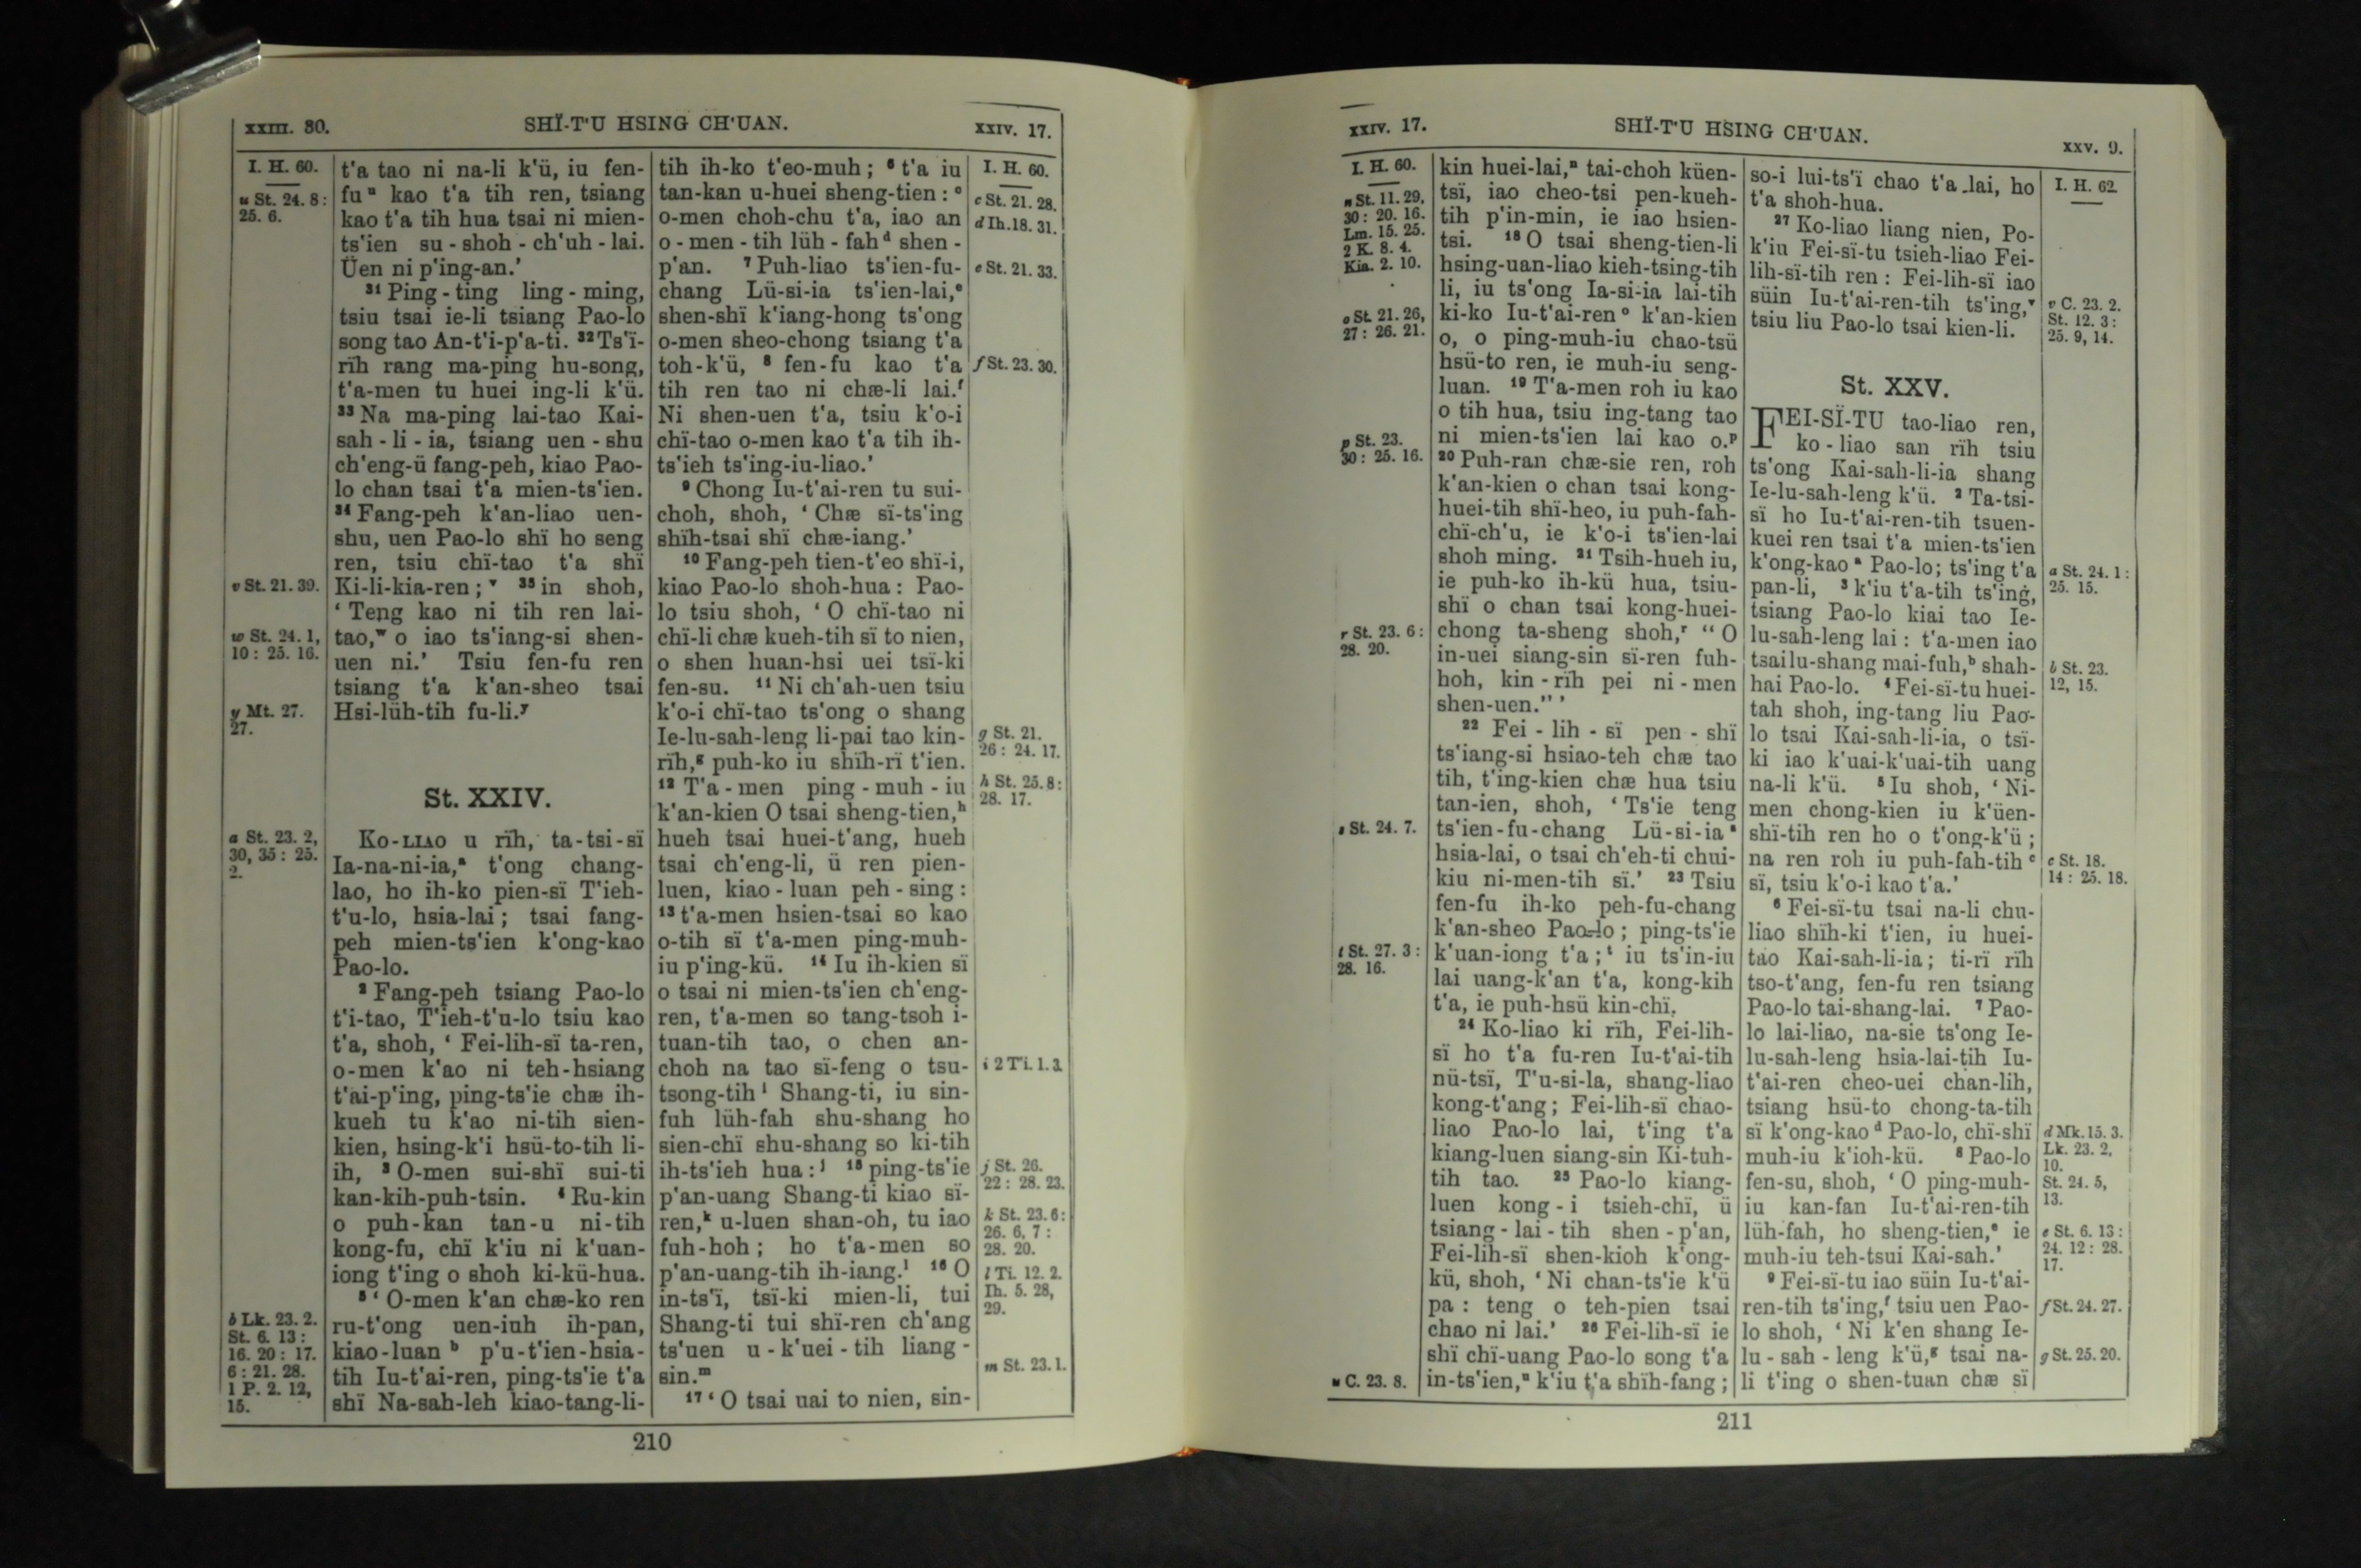 XXIII. 30.
SHÏ-T'U HSING CH'UAN.
XXIV. 17.
I. H. 60.
u St. 24. 8:
25. 6.
v St. 21. 39.
w St. 24. 1,
10: 25. 16.
y Mt. 27.
27.
a St. 23. 2,
30, 35: 25.
2.
b Lk. 23. 2.
St. 6. 13:
16. 20: 17.
6: 21. 28.
1 P. 2. 12,
15.
t'a tao ni na-li k'ü, iu fen-
fu u kao t'a tih ren, tsiang
kao t'a tih hua tsai ni mien-
ts'ien su-shoh-ch'uh-lai.
Üen ni p'ing-an.'
31 Ping-ting ling-ming,
tsiu tsai ie-li tsiang Pao-lo
song tao An-t'i-p'a-ti. 32 Ts'ï-
rïh rang ma-ping hu-song,
t'a-men tu huei ing-li k'ü.
33 Na ma-ping lai-tao Kai-
sah-li-ia, tsiang uen-shu
ch'eng-ü fang-peh, kiao Pao-
lo chan tsai t'a mien-ts'ien.
34 Fang-peh k'an-liao uen-
shu, uen Pao-lo shï ho seng
ren, tsiu chï-tao t'a shï
Ki-li-kia-ren; v 35 in shoh,
' Teng kao ni tih ren lai-
tao, w o iao ts'iang-si shen-
uen ni.' Tsiu fen-fu ren
tsiang t'a k'an-sheo tsai
Hsi-lüh-tih fu-li. y
St. XXIV.
KO-LIAO u rïh, ta-tsi-sï
Ia-na-ni-ia, a t'ong chang-
lao, ho ih-ko pien-sï T'ieh-
t'u-lo, hsia-lai; tsai fang-
peh mien-ts'ien k'ong-kao
Pao-lo.
2 Fang-peh tsiang Pao-lo
t'i-tao, T'ieh-t'u-lo tsiu kao
t'a, shoh, ' Fei-lih-sï ta-ren,
o-men k'ao ni teh-hsiang
t'ai-p'ing, ping-ts'ie chæ ih-
kueh tu k'ao ni-tih sien-
kien, hsing-k'i hsü-to-tih li-
ih, 3 O-men sui-shï sui-ti
kan-kih-puh-tsin. 4 Ru-kin
o puh-kan tan-u ni-tih
kong-fu, chï k'iu ni k'uan-
iong t'ing o shoh ki-kü-hua.
5 ' O-men k'an chæ-ko ren
ru-t'ong uen-iuh ih-pan,
kiao-luan b p'u-t'ien-hsia-
tih Iu-t'ai-ren, ping-ts'ie t'a
shï Na-sah-leh kiao-tang-li-
tih ih-ko t'eo-muh; 6 t'a iu
tan-kan u-huei sheng-tien: c
o-men choh-chu t'a, iao an
o-men-tih lüh-fah d shen-
p'an. 7 Puh-liao ts'ien-fu-
chang Lü-si-ia ts'ien-lai, e
shen-shï k'iang-hong ts'ong
o-men sheo-chong tsiang t'a
toh-k'ü, 8 fen-fu kao t'a
tih ren tao ni chæ-li lai. f
Ni shen-uen t'a, tsiu k'o-i
chï-tao o-men kao t'a tih ih-
ts'ieh ts'ing-iu-liao.'
9 Chong Iu-t'ai-ren tu sui-
choh, shoh, ' Chæ sï-ts'ing
shïh-tsai shï chæ-iang.'
10 Fang-peh tien-t'eo shï-i,
kiao Pao-lo shoh-hua: Pao-
lo tsiu shoh, ' O chï-tao ni
chï-li chæ kueh-tih sï to nien,
o shen huan-hsi uei tsï-ki
fen-su. 11 Ni ch'ah-uen tsiu
k'o-i chï-tao ts'ong o shang
Ie-lu-sah-leng li-pai tao kin-
rïh, g puh-ko iu shïh-rï t'ien.
12 T'a-men ping-muh-iu
k'an-kien O tsai sheng-tien, h
hueh tsai huei-t'ang, hueh
tsai ch'eng-li, ü ren pien-
luen, kiao-luan peh-sing:
13 t'a-men hsien-tsai so kao
o-tih sï t'a-men ping-muh-
iu p'ing-kü. 14 Iu ih-kien sï
o tsai ni mien-ts'ien ch'eng-
ren, t'a-men so tang-tsoh i-
tuan-tih tao, o chen an-
choh na tao sï-feng o tsu-
tsong-tih i Shang-ti, iu sin-
fuh lüh-fah shu-shang ho
sien-chï shu-shang so ki-tih
ih-ts'ieh hua: j 15 ping-ts'ie
p'an-uang Shang-ti kiao sï-
ren, k u-luen shan-oh, tu iao
fuh-hoh; ho t'a-men so
p'an-uang-tih ih-iang. l 16 O
in-ts'ï, tsï-ki mien-li, tui
Shang-ti tui shï-ren ch'ang
ts'uen u-k'uei-tih liang-
sin. m
17 ' O tsai uai to nien, sin-
I. H. 60.
c St. 21. 28.
d Ih. 18. 31.
e St. 21. 33.
f St. 23. 30.
g St. 21.
26: 24. 17.
h St. 25. 8:
28. 17.
i 2 Ti. 1. 3.
j St. 26.
22: 28. 23.
k St. 23. 6:
26. 6, 7:
28. 20.
l Ti. 12. 2.
Ih. 5. 28,
29.
m St. 23. 1.
210
XXIV. 17.
SHÏ-T'U HSING CH'UAN.
XXV. 9.
I. H. 60.
n St. 11. 29,
30: 20. 16.
Lm. 15. 25.
2 K. 8. 4.
Kia. 2. 10.
o St. 21. 26,
27: 26. 21.
p St. 23.
30: 25. 16.
r St. 23. 6:
28. 20.
s St. 24. 7.
t St. 27. 3:
28. 16.
u C. 23. 8.
kin huei-lai, n tai-choh küen-
tsï, iao cheo-tsi pen-kueh-
tih p'in-min, ie iao hsien-
tsi. 18 O tsai sheng-tien-li
hsing-uan-liao kieh-tsing-tih
li, iu ts'ong Ia-si-ia lai-tih
ki-ko Iu-t'ai-ren o k'an-kien
o, o ping-muh-iu chao-tsü
hsü-to ren, ie muh-iu seng-
luan. 19 T'a-men roh iu kao
o tih hua, tsiu ing-tang tao
ni mien-ts'ien lai kao o. p
20 Puh-ran chæ-sie ren, roh
k'an-kien o chan tsai kong-
huei-tih shï-heo, iu puh-fah-
chï-ch'u, ie k'o-i ts'ien-lai
shoh ming. 21 Tsih-hueh iu,
ie puh-ko ih-kü hua, tsiu-
shï o chan tsai kong-huei-
chong ta-sheng shoh, r " O
in-uei siang-sin sï-ren fuh-
hoh, kin-rïh pei ni-men
shen-uen." '
22 Fei-lih-sï pen-shï
ts'iang-si hsiao-teh chæ tao
tih, t'ing-kien chæ hua tsiu
tan-ien, shoh, ' Ts'ie teng
ts'ien-fu-chang Lü-si-ia s
hsia-lai, o tsai ch'eh-ti chui-
kiu ni-men-tih sï.' 23 Tsiu
fen-fu ih-ko peh-fu-chang
k'an-sheo Pao-lo; ping-ts'ie
k'uan-iong t'a; t iu ts'in-iu
lai uang-k'an t'a, kong-kih
t'a, ie puh-hsü kin-chï.
24 Ko-liao ki rïh, Fei-lih-
sï ho t'a fu-ren Iu-t'ai-tih
nü-tsï, T'u-si-la, shang-liao
kong-t'ang; Fei-lih-sï chao-
liao Pao-lo lai, t'ing t'a
kiang-luen siang-sin Ki-tuh-
tih tao. 25 Pao-lo kiang-
luen kong-i tsieh-chï, ü
tsiang-lai-tih shen-p'an,
Fei-lih-sï shen-kioh k'ong-
kü, shoh, ' Ni chan-ts'ie k'ü
pa: teng o teh-pien tsai
chao ni lai.' 26 Fei-lih-sï ie
shï chï-uang Pao-lo song t'a
in-ts'ien, u k'iu t'a shïh-fang;
so-i lui-ts'ï chao t'a lai, ho
t'a shoh-hua.
27 Ko-liao liang nien, Po-
k'iu Fei-sï-tu tsieh-liao Fei-
lih-sï-tih ren: Fei-lih-sï iao
süin Iu-t'ai-ren-tih ts'ing, v
tsiu liu Pao-lo tsai kien-li.
St. XXV.
FEI-SÏ-TU tao-liao ren,
ko-liao san rïh tsiu
ts'ong Kai-sah-li-ia shang
Ie-lu-sah-leng k'ü. 2 Ta-tsi-
sï ho Iu-t'ai-ren-tih tsuen-
kuei ren tsai t'a mien-ts'ien
k'ong-kao a Pao-lo; ts'ing t'a
pan-li, 3 k'iu t'a-tih ts'ing,
tsiang Pao-lo kiai tao Ie-
lu-sah-leng lai: t'a-men iao
tsai lu-shang mai-fuh, b shah-
hai Pao-lo. 4 Fei-sï-tu huei-
tah shoh, ing-tang liu Pao-
lo tsai Kai-sah-li-ia, o tsï-
ki iao k'uai-k'uai-tih uang
na-li k'ü. 5 Iu shoh, ' Ni-
men chong-kien iu k'üen-
shï-tih ren ho o t'ong-k'ü;
na ren roh iu puh-fah-tih c
sï, tsiu k'o-i kao t'a.'
6 Fei-sï-tu tsai na-li chu-
liao shïh-ki t'ien, iu huei-
tao Kai-sah-li-ia; ti-rï rïh
tso-t'ang, fen-fu ren tsiang
Pao-lo tai-shang-lai. 7 Pao-
lo lai-liao, na-sie ts'ong Ie-
lu-sah-leng hsia-lai-tih Iu-
t'ai-ren cheo-uei chan-lih,
tsiang hsü-to chong-ta-tih
sï k'ong-kao d Pao-lo, chï-shï
muh-iu k'ioh-kü. 8 Pao-lo
fen-su, shoh, ' O ping-muh-
iu kan-fan Iu-t'ai-ren-tih
lüh-fah, ho sheng-tien, e ie
muh-iu teh-tsui Kai-sah.'
9 Fei-sï-tu iao süin Iu-t'ai-
ren-tih ts'ing, f tsiu uen Pao-
lo shoh, ' Ni k'en shang Ie-
lu-sah-leng k'ü, g tsai na-
li t'ing o shen-tuan chæ sï
I. H. 62
v C. 23. 2.
St. 12. 3:
25. 9, 14.
a St. 24. 1:
25. 15.
b St. 23.
12, 15.
c St. 18.
14: 25. 18.
d Mk. 15. 3.
Lk. 23. 2,
10.
St. 24. 5,
13.
e St. 6. 13:
24. 12: 28.
17.
f St. 24. 27.
g St. 25. 20.
211